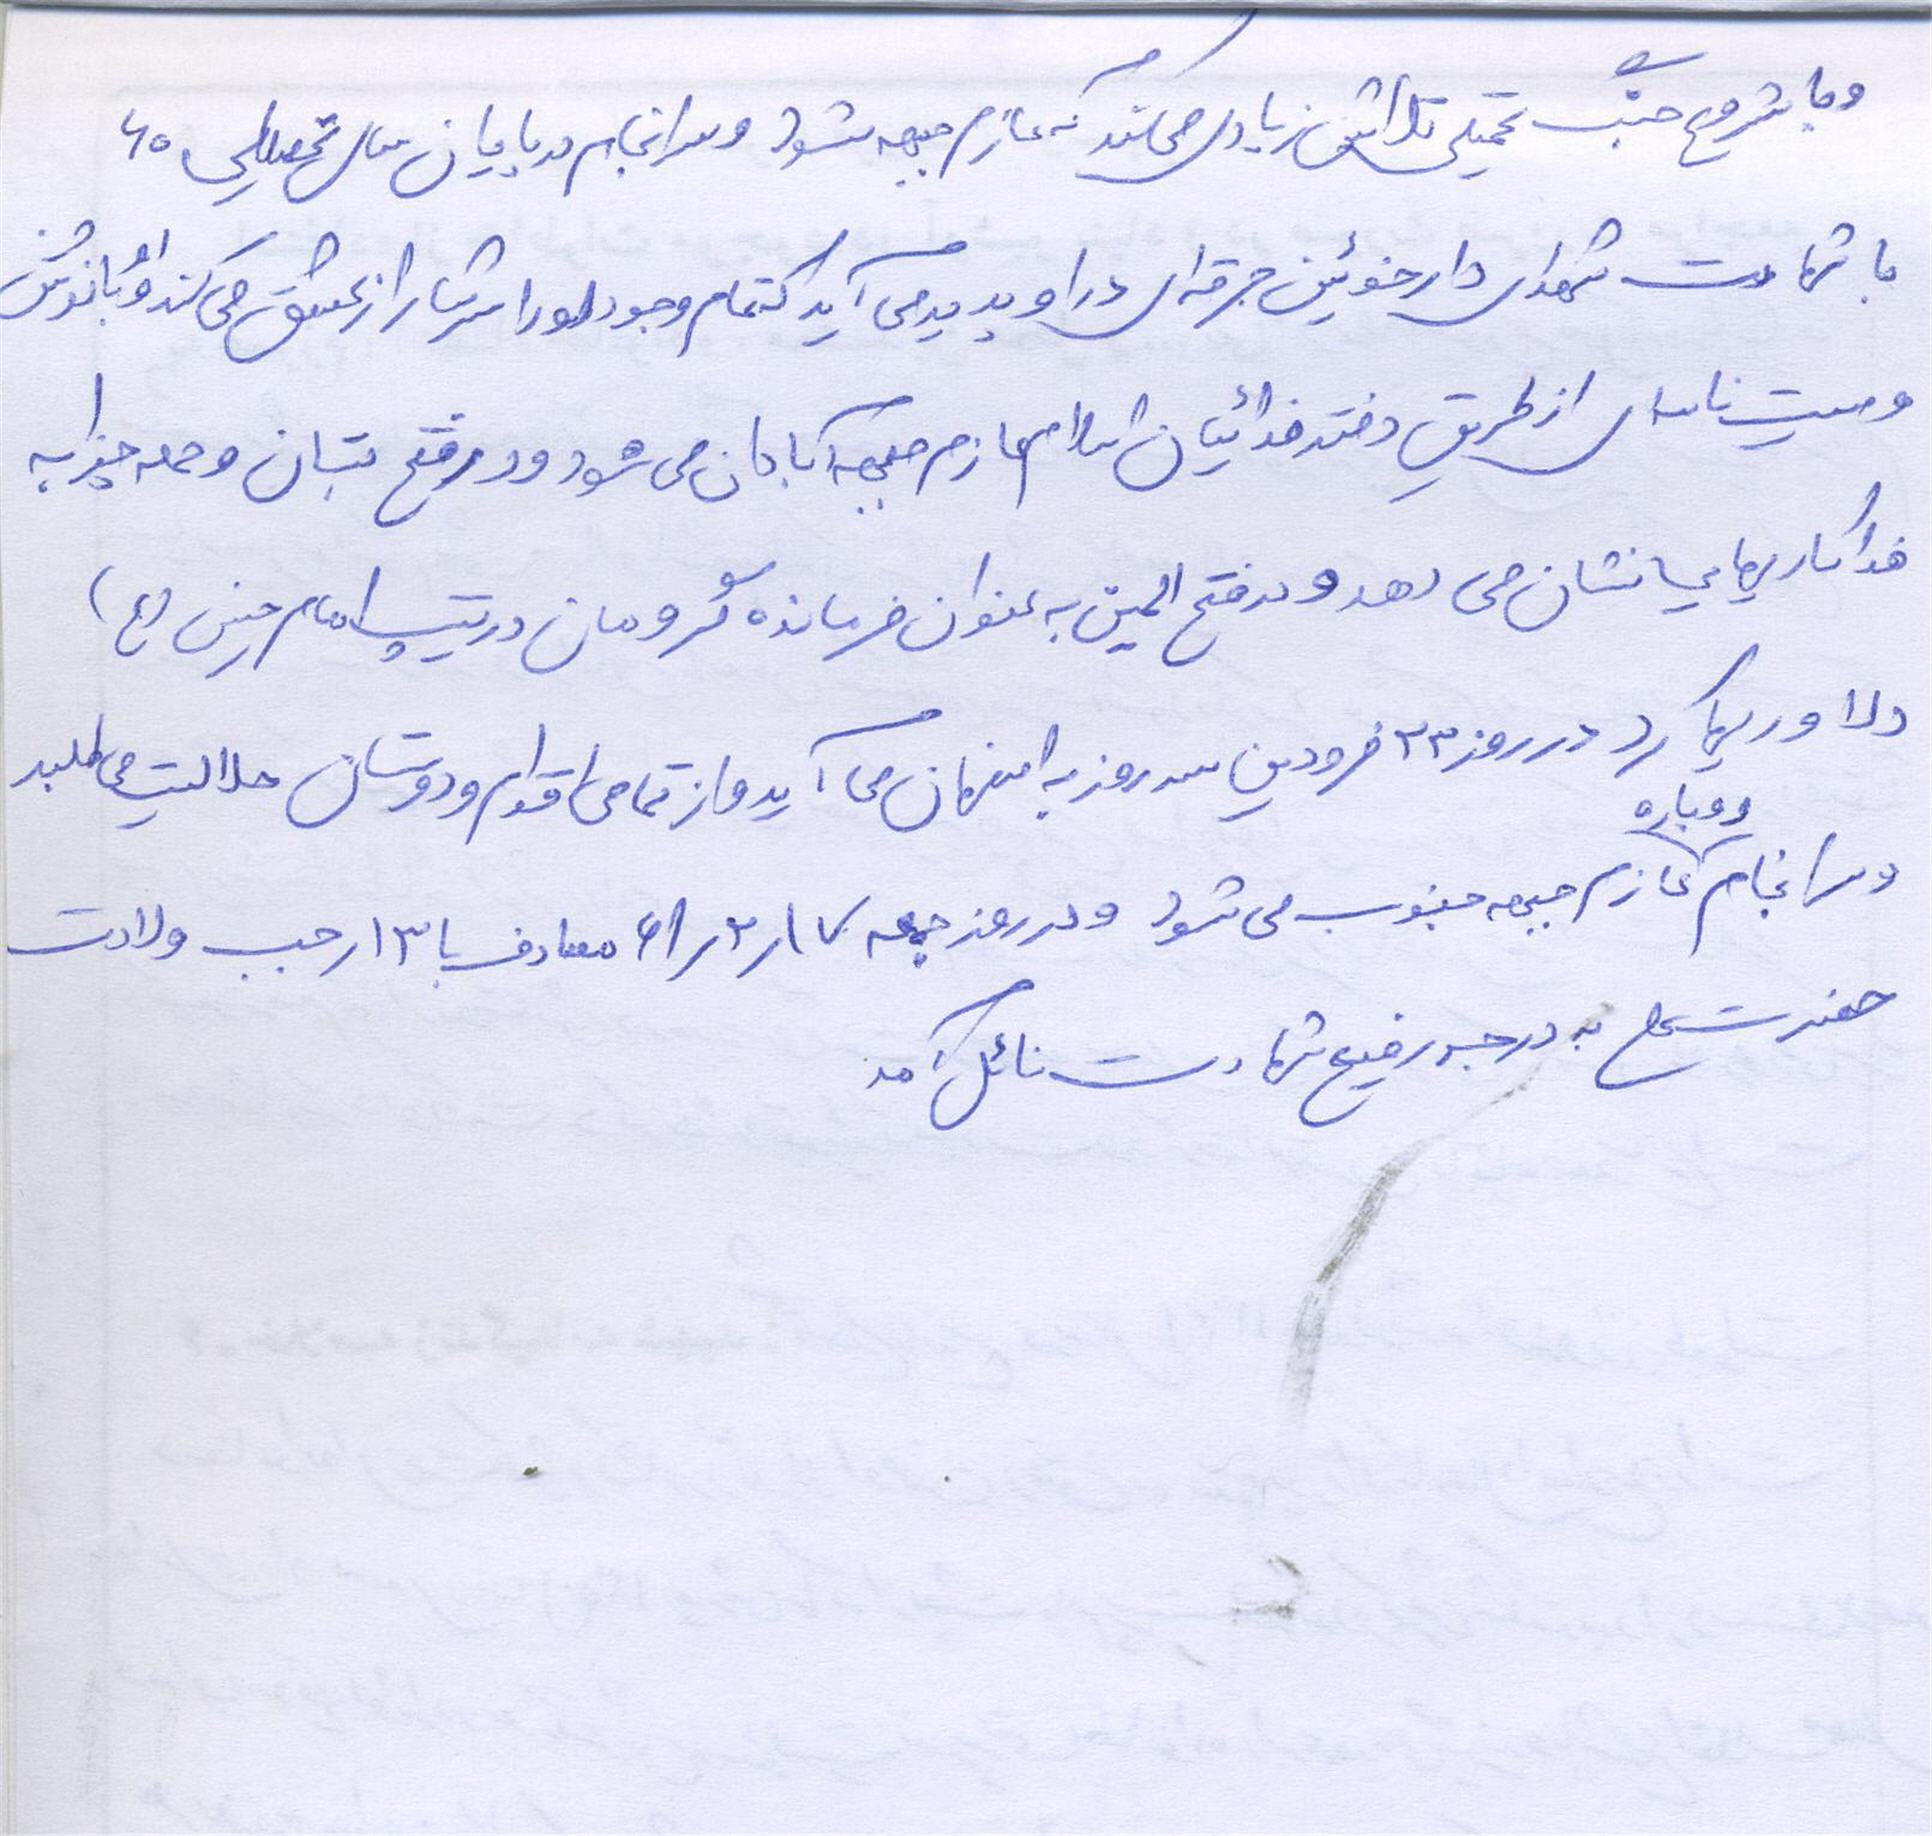 و با شروع جنگ تحمیلی تلاش زیادی می کند که عازم جبهه شود و سرانجام در پایان سال تحصیلی ۶۰
با شهادت شهدای دارخوئین جرقه ای در او پدید می آید که تمام وجود او را سرشار از عشق می کند و با نوشتن
وصیت نامه ای از طریق دفتر فدائیان اسلام عازم جبهه آبادان می شود و در فتح بستان و حمله چزابه
فداکاریهایی نشان می دهد و در فتح المبین به عنوان فرمانده گروهان در تیپ امام حسین (ع)
دلاوریها کرد در روز ۲۳ فرودین سه روز به اصفهان می آید و از تمامی اقوام و دوستان حلالیت می طلبد
و سرانجام دوباره عازم جبهه جنوب می شود و در روز جمعه ۱۷ر۲ر۶۱ مصادف با ۱۳ رجب ولادت
حضرت علی به درجه رفیع شهادت نائل آمد